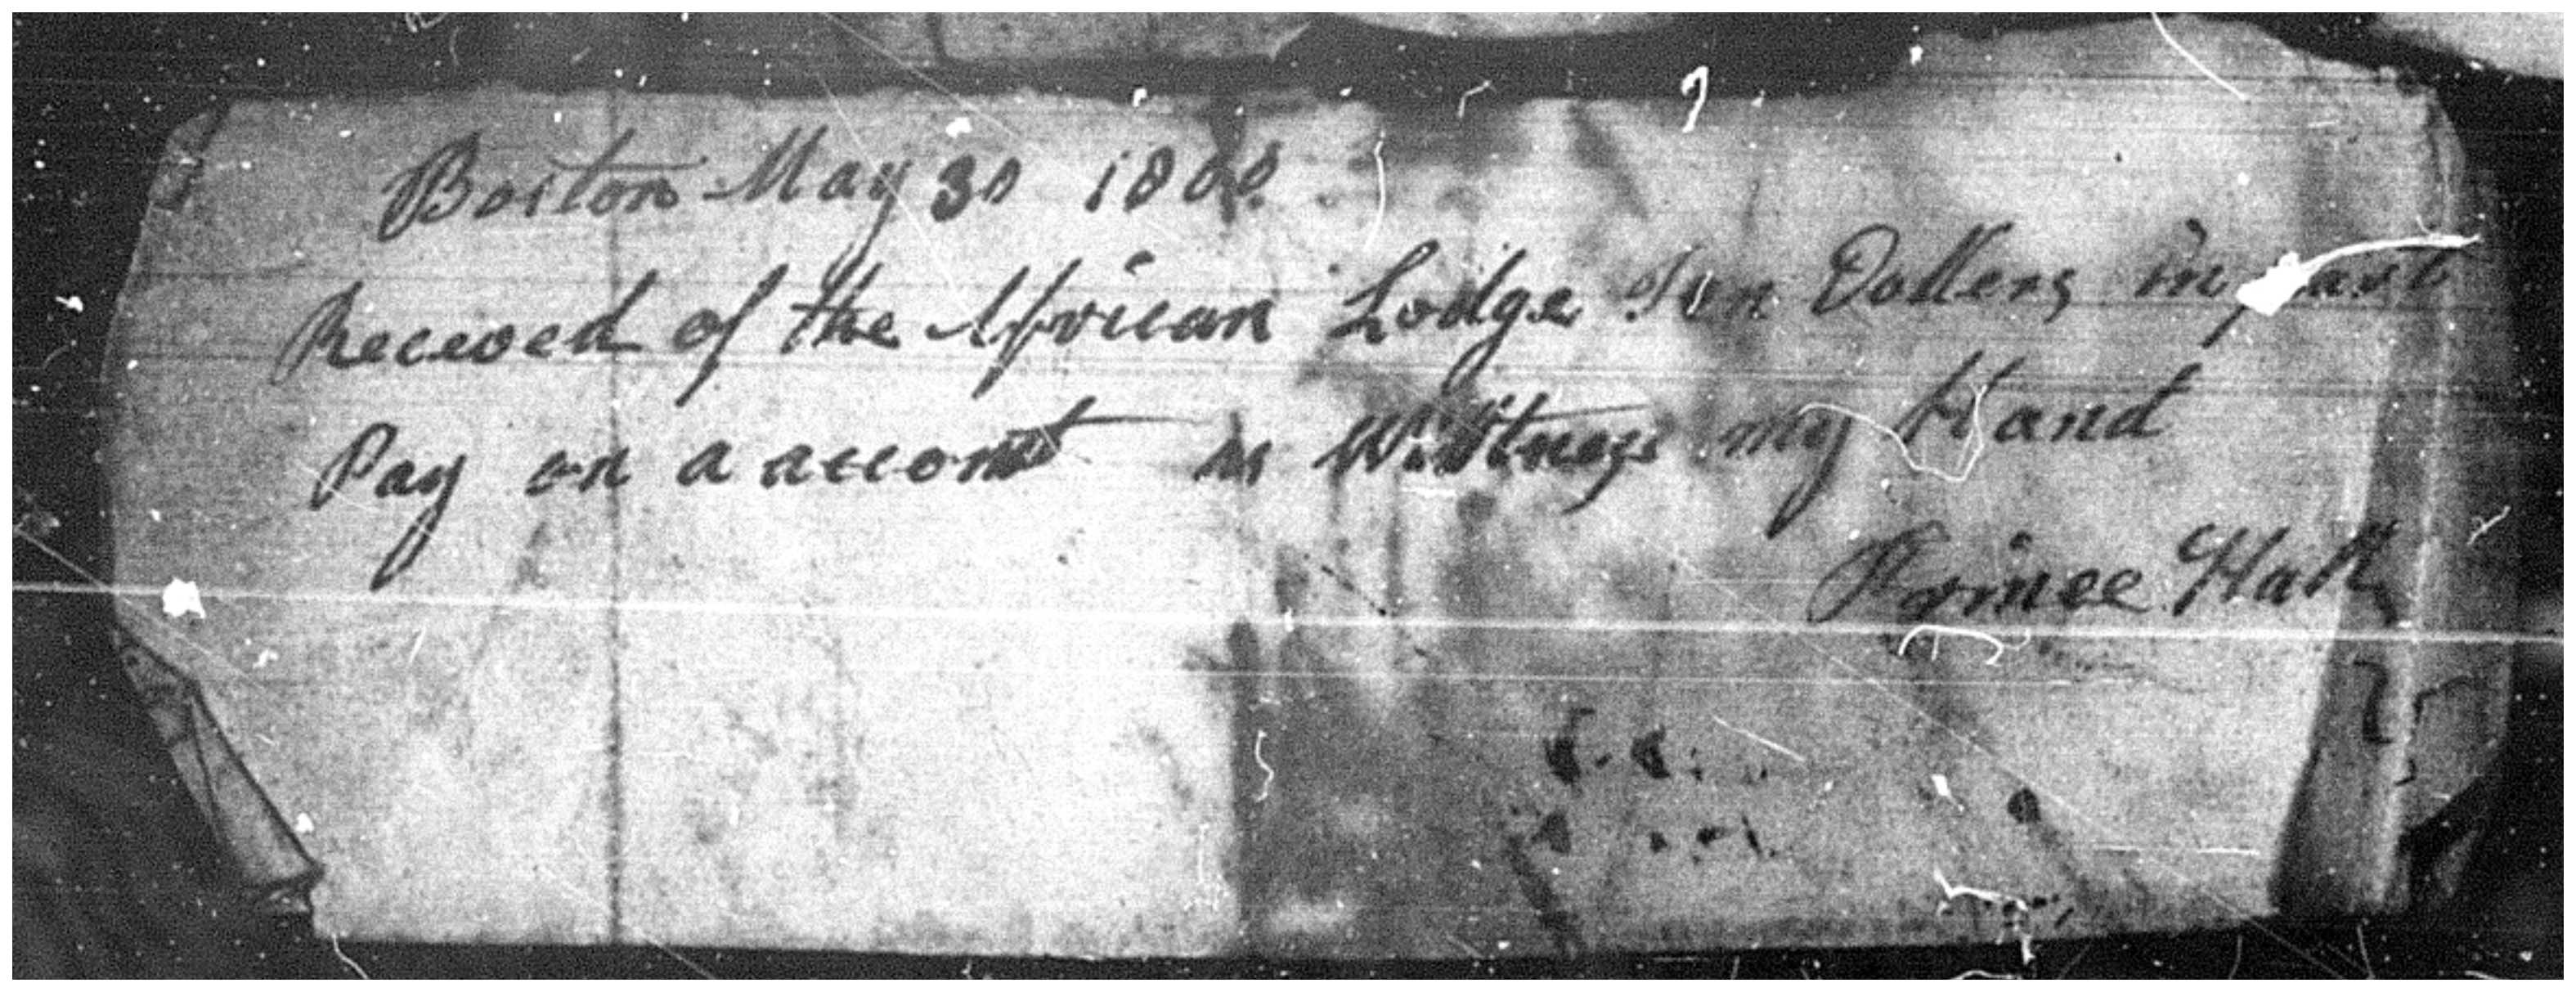 Boston May 30 180
Receved of the African Lodge Ten Dollers in part
Pay on a accont as Wittness my Hand
Prince Hall